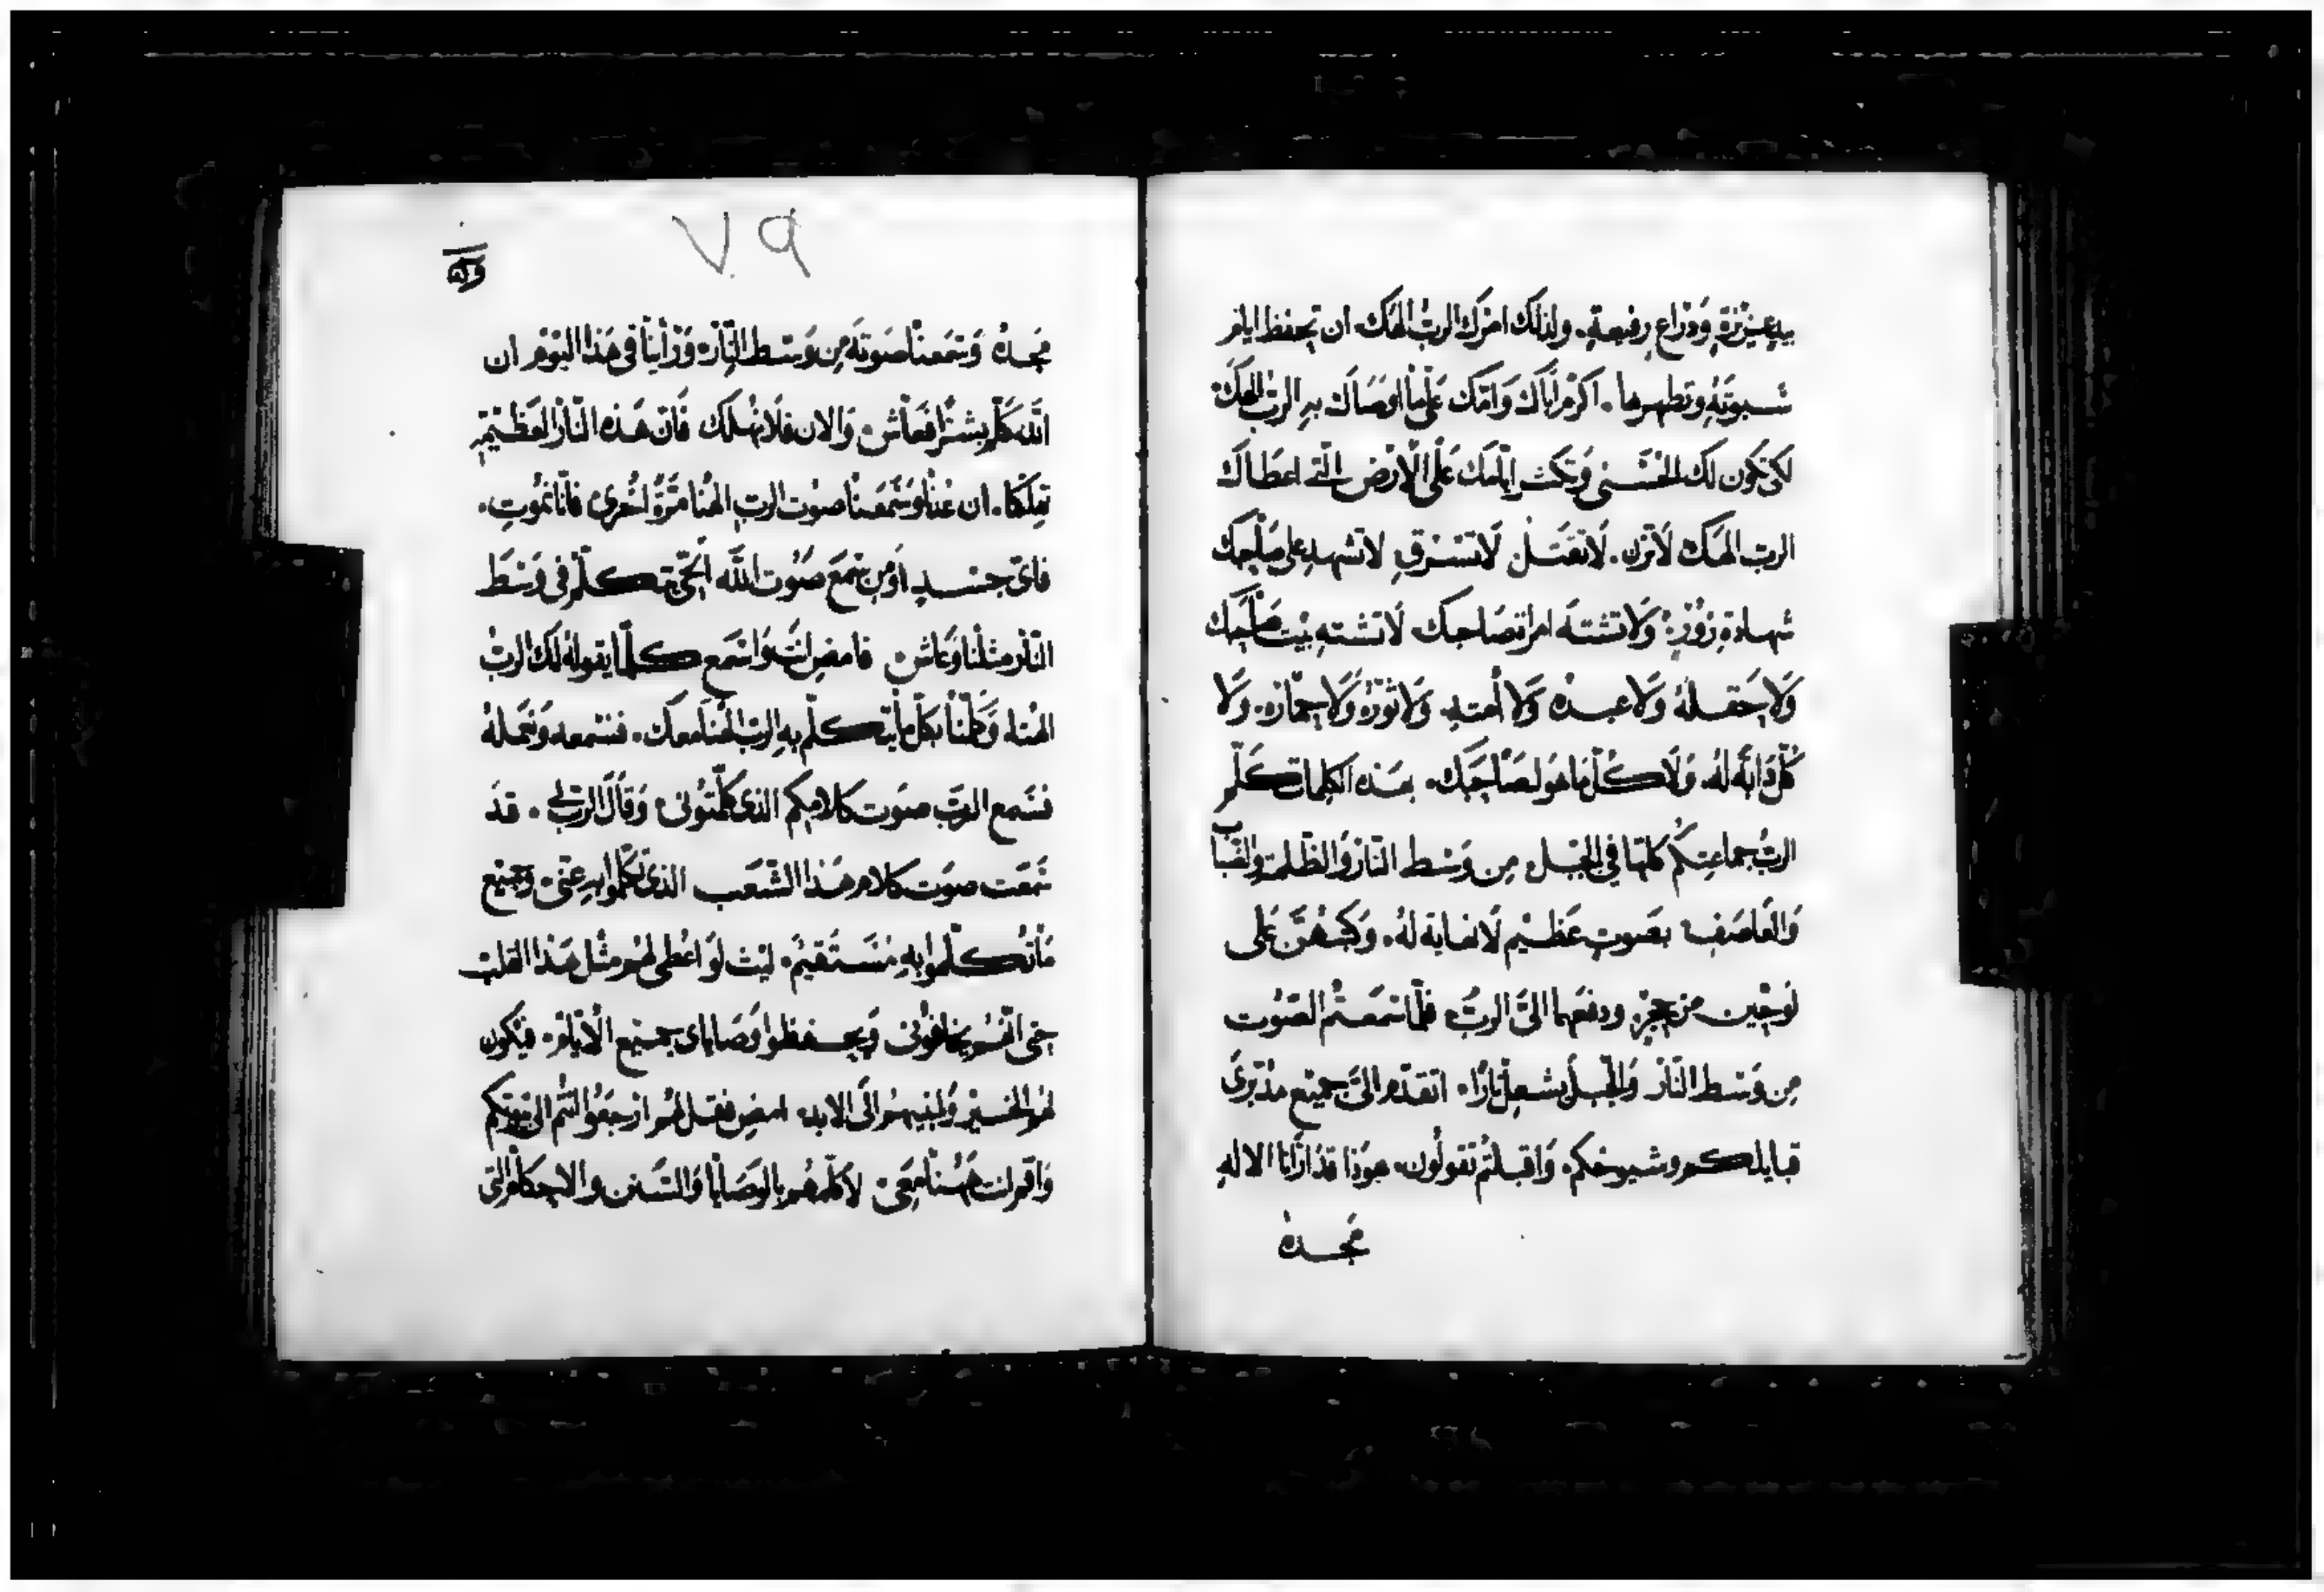 بيدٍ عزيزةٍ وذراعٍ رفيعةٍ. ولذلك امرك الرب الهك ان تحفظ ايام
سبوته وتطهرها. اكرم اباك وامك على ما اوصاك به الرب الهك
لكى تكون لك الحسنى وتكثر ايامك على الارض التى اعطاك
الرب الهك لا تزن. لا تقتل لا تسرق لا تشهد على صاحبك
شهادة زور: ولا تشته امراة صاحبك لا تشته بيت صاحبك
ولا حقله ولا عبده ولا امته ولا ثوره ولا حماره. ولا
كل دابه له ولا كل ما هو لصاحبك. بهذه الكلمات كلم
الرب جماعتكم كلها فى الجبل من وسط النار والظلمة والضباب
والعاصف بصوت عظيم لا نهاية له. وكتبهن على
لوحين من حجر ودفعها الىّ الرب فلما سمعتم الصوت
من وسط النار والجبل يشعل نارا. اتقدم الىّ جميع مدبرى
قبايلكم وشيوخكم. واقبلتم تقولون. هوذا قد ارانا الاله
مجده
٧٩
مجده وسمعنا صوته من وسط النار وراينا فى هذا اليوم ان
الله كلم بشرا فعاش والان فلا نهلك فان هذه النار العظيمه
تهلكنا. ان عدنا وسمعنا صوت الرب الهنا مرة اخرى فانا نموت.
فاى جسد او من سمع صوت الله الحى يتكلم فى وسط
النار مثلنا وعاش فامض انت واسمع كلما يقوله لك الرب
الهنا وكلمنا بكل ما يتكلم به الرب الهنا معك. فنسمعه ونعمله
فسمع الرب صوت كلامكم الذى كلمتونى وقال الرب لى. قد
سمعت صوت كلام هذا الشعب الذى تكلموا به عنى وجميع
ما تكلموا به مستقيم. ليت لو اعطى لهم مثل هذا القلب
حتى انهم يخافونى ويحفظوا وصاياى جميع الايام. فيكون
لهم الخير ولبنيهم الى الابد امض فقل لهم ارجعوا انتم الى بيوتكم
واقم انت ههنا معى لاكلمهم بالوصايا والسنن والاحكام التى